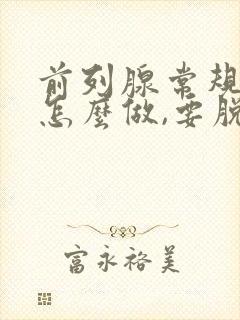 前列腺常规
怎麼做,要脱
富永裕美